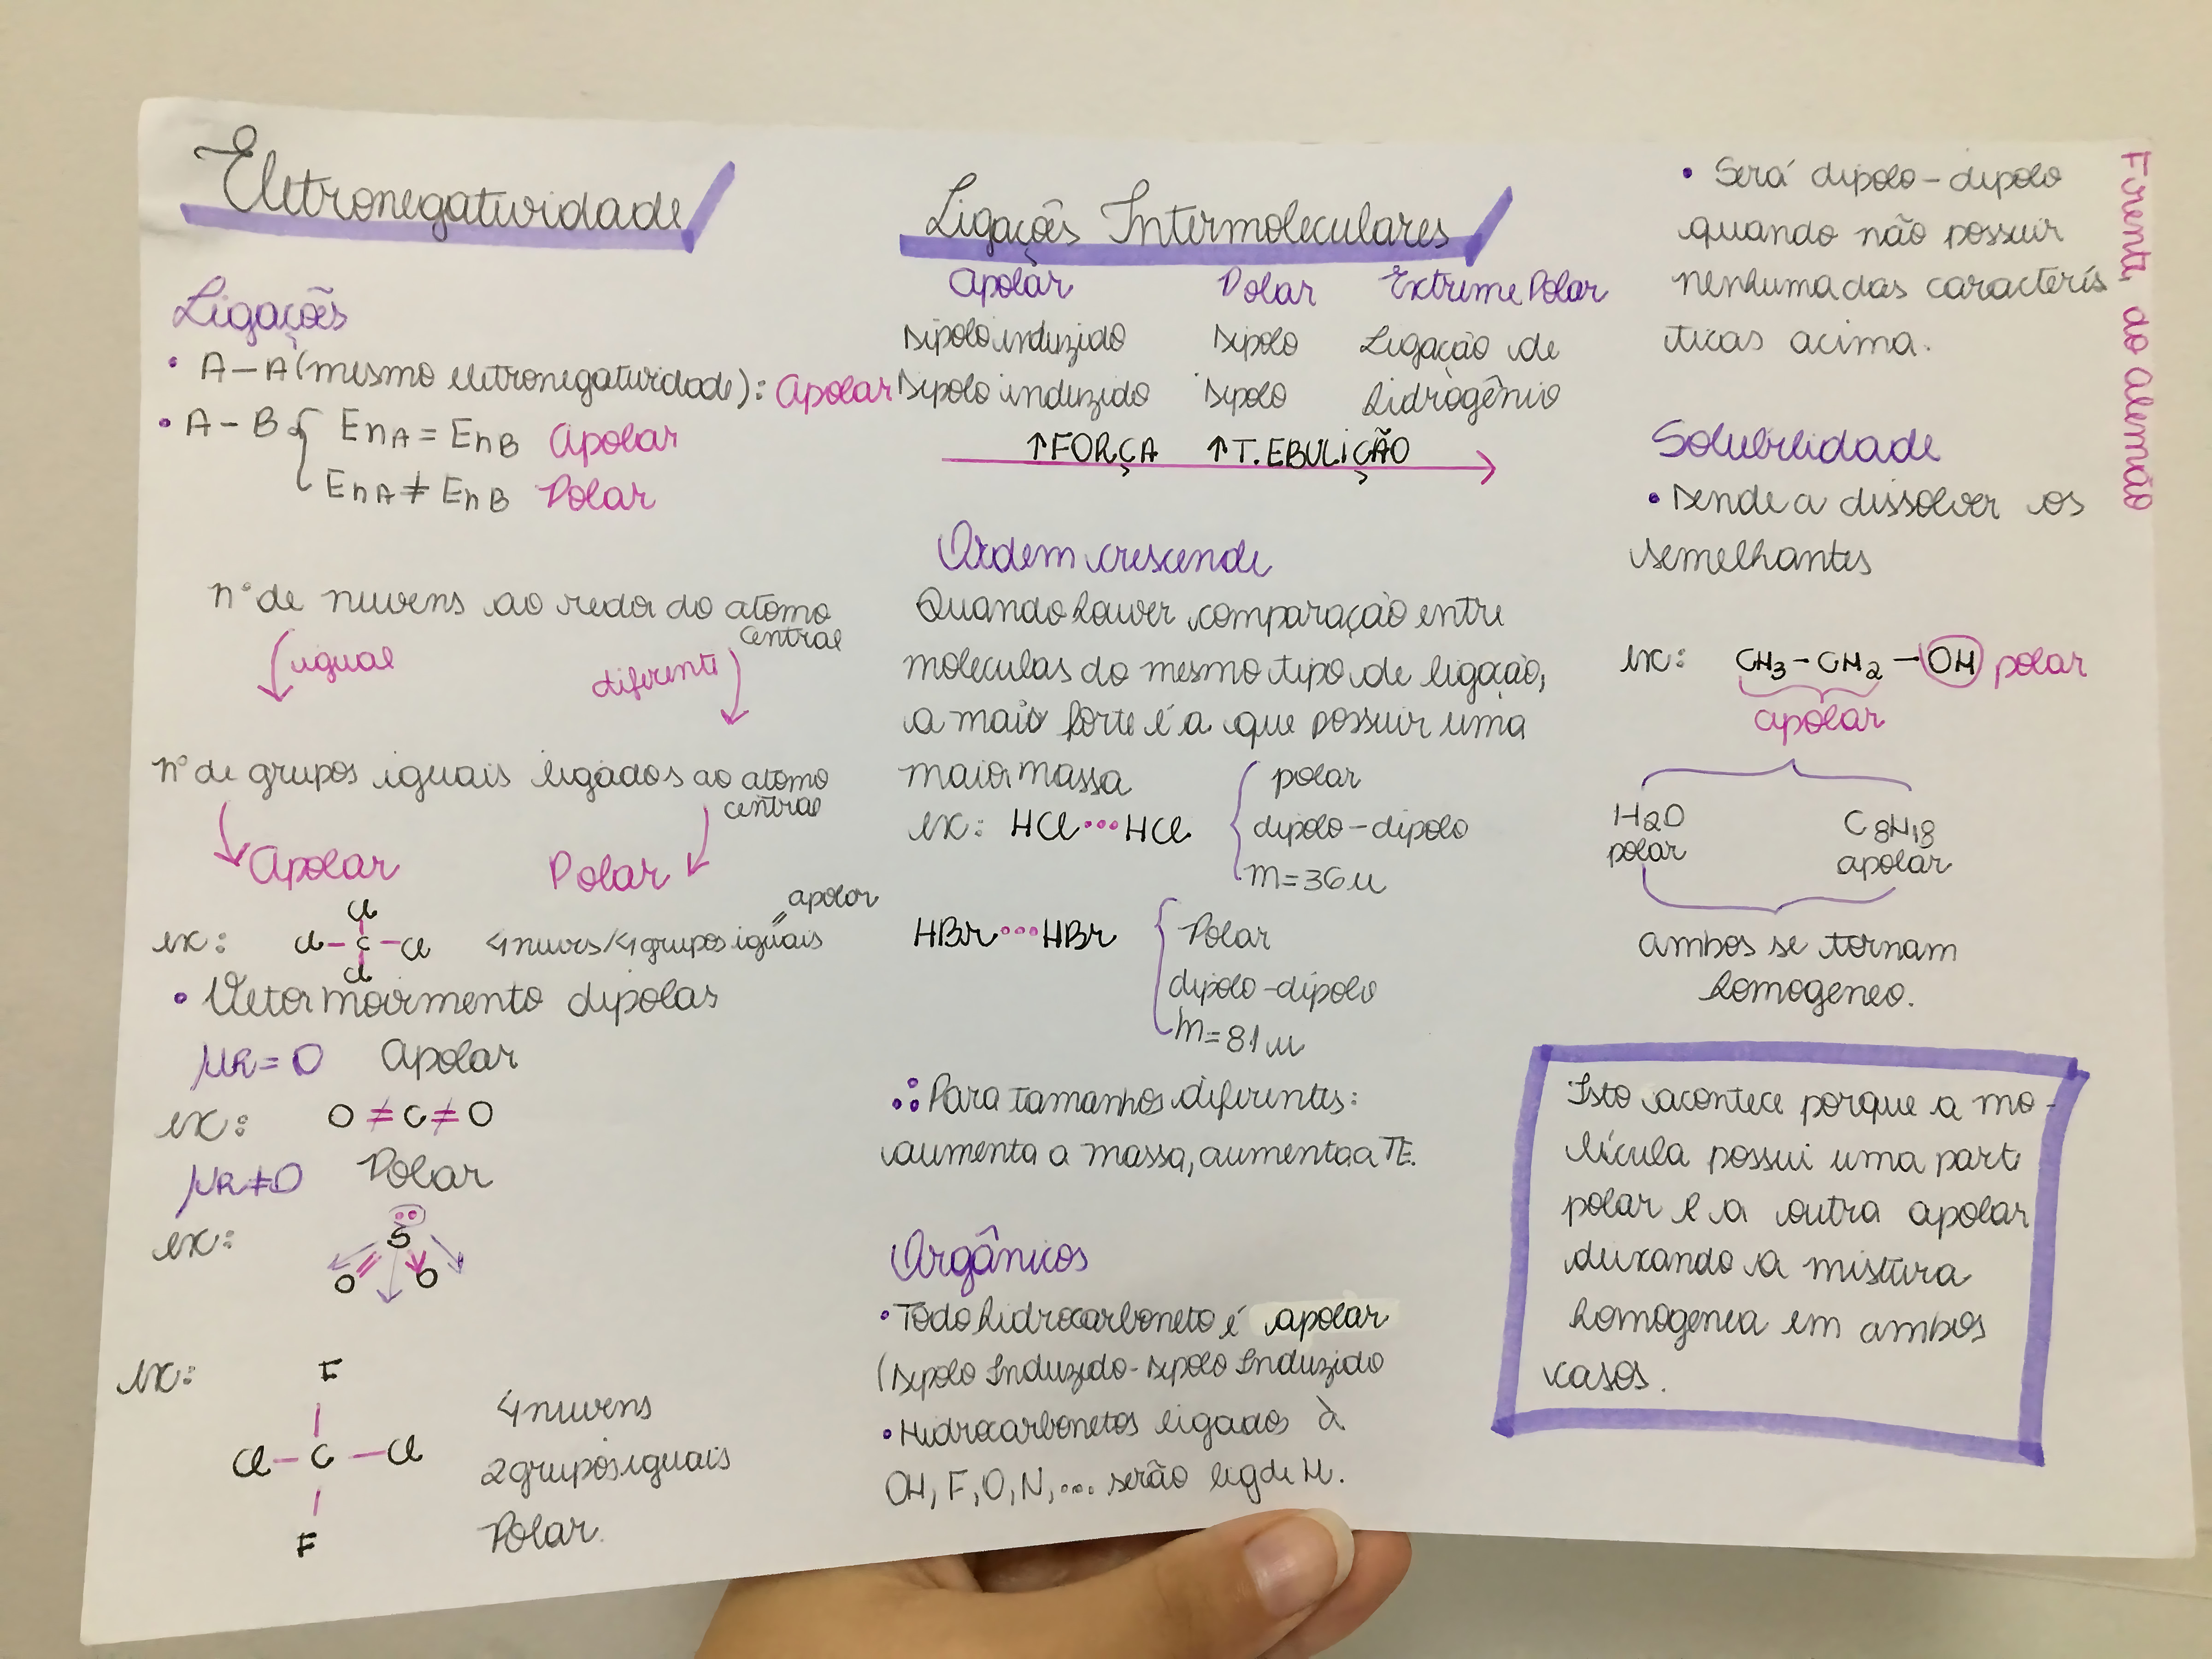 Eletronegatividade
Ligações
• A-A (mesmo eletronegatividade): Apolar
• A-B { EnA = EnB Apolar
EnA ≠ EnB Polar
nº de nuvens ao redor do atomo
central
igual
diferente
nº de grupos iguais ligados ao atomo
central
Apolar Polar
apolar
Cl
ex: Cl-C-Cl 4 nuves/4 grupos iguais
Cl
• Vetor movimento dipolas
μR = 0 Apolar
ex: O = C = O
μR ≠ 0 Polar
ex: S
O O
ex: F
4 nuvens
Cl - C - Cl
2 grupos iguais
F
Polar.
Ligações Intermoleculares
Apolar Polar Extreme Polar
Dipolo induzido Dipolo Ligação de
Dipolo induzido Dipolo hidrogênio
↑FORÇA ↑T. EBULIÇÃO
Ordem crescende
Quando houver comparação entre
moleculas do mesmo tipo de ligação,
a mais forte é a que possuir uma
maior massa
ex: HCl ••• HCl { polar
dipolo-dipolo
m=36u
HBr ••• HBr { Polar
dipolo-dipolo
m=81u
∴ Para tamanhos diferentes:
aumenta a massa, aumenta a TE.
Orgânicos
• Todo hidrocarboneto é apolar
(Dipolo Induzido-Dipolo Induzido
• Hidrocarbonetos ligados à
OH, F, O, N, ... serão lig de H.
• Será dipolo-dipolo
quando não possuir
nenhuma das caracterís
ticas acima.
Solubilidade
• Tende a dissolver os
semelhantes
ex: CH3-CH2-OH polar
apolar
H2O C8H18
polar apolar
ambos se tornam
homogeneo.
Isto acontece porque a mo-
lécula possui uma parte
polar e a outra apolar
deixando a mistura
homogenea em ambos
casos.
Frente do alemão